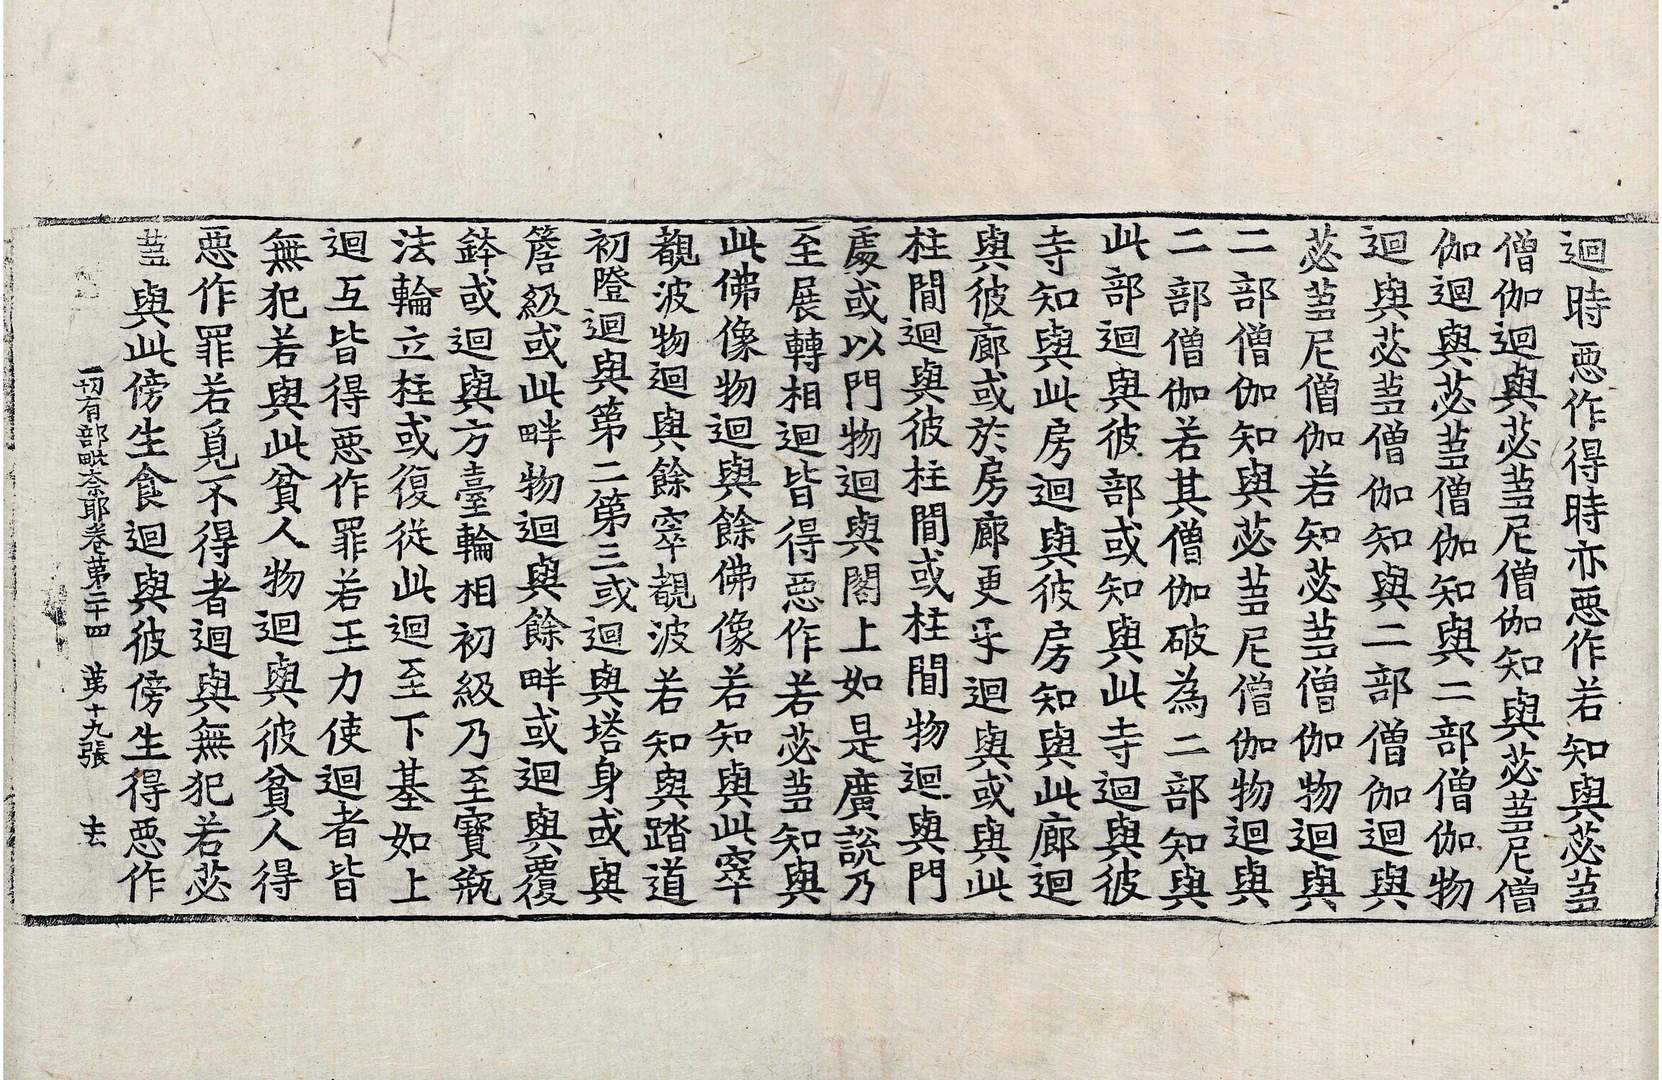 迴時惡作得時亦惡作若知與苾蒭
僧伽迴與苾蒭尼僧伽知與苾蒭尼僧
伽迴與苾蒭僧伽知與二部僧伽物
迴與苾蒭僧伽知與二部僧伽迴與
苾蒭尼僧伽若知苾蒭僧伽物迴與
二部僧伽知與苾蒭尼僧伽物迴與
二部僧伽若其僧伽破為二部知與
此部迴與彼部或知與此寺迴與彼
寺知與此房迴與彼房知與此廊迴
與彼廊或於房廊更乎迴與或與此
柱間迴與彼柱間或柱間物迴與門
處或以門物迴與閣上如是廣說乃
至展轉相迴皆得惡作若苾蒭知與
此佛像物迴與餘佛像若知與此窣
覩波物迴與餘窣覩波若知與踏道
初隥迴與第二第三或迴與塔身或與
簷級或此畔物迴與餘畔或迴與覆
鉢或迴與方臺輪相初級乃至寶瓶
法輪立柱或復從此迴至下基如上
迴互皆得惡作罪若王力使迴者皆
無犯若與此貧人物迴與彼貧人得
惡作罪若覓不得者迴與無犯若苾
蒭與此傍生食迴與彼傍生得惡作
一切有部毗奈耶卷第二十四 第十九張 去